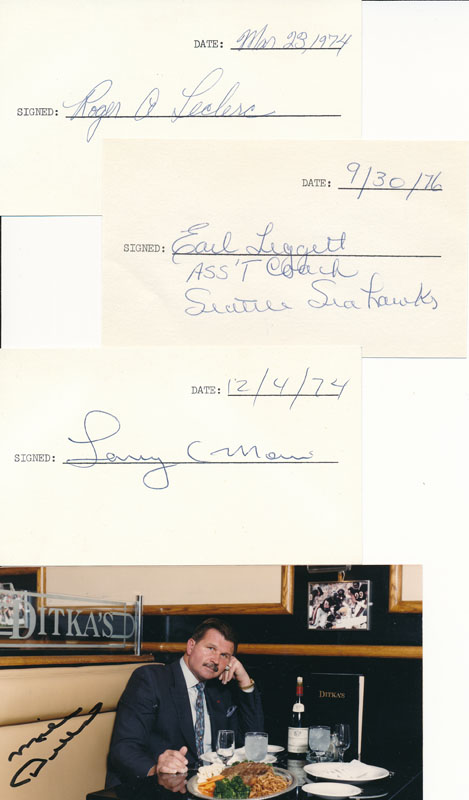 DATE: Mar 23, 1974
SIGNED: Roger A Leclerc
DATE: 9/30/76
SIGNED: Earl Leggett
ASS'T Coach
Seattle Seahawks
DATE: 12/4/74
SIGNED: Larry C Morris
DITKA'S
DITKA'S
Mike
Ditka